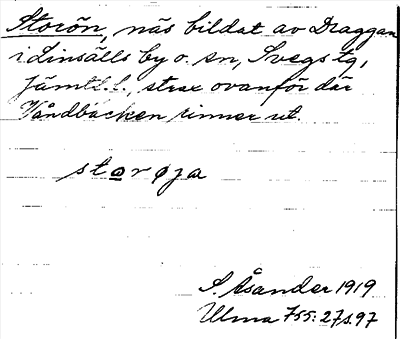 Storön, näs bildat av Draggan
i Linsälls by o. sn, Svegs tg,
Jämtl. l., strax ovanför där
Våndbäcken rinner ut.
storøja
S. Åsander 1919
Ulma 755:27 s.97